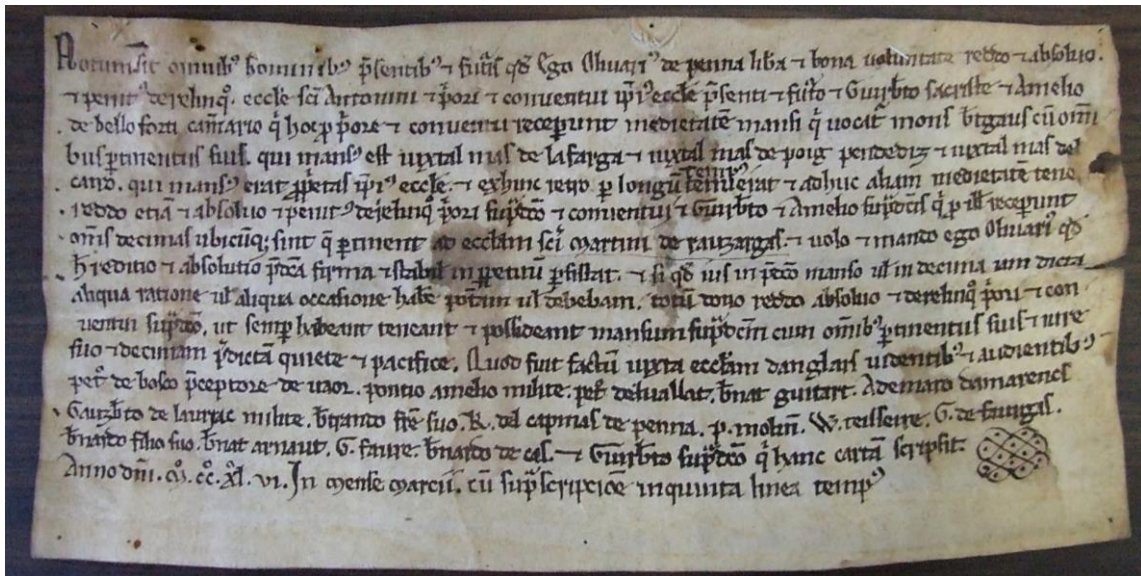 Notum sit omnibꝫ hominibꝫ p̄sentibꝫ ⁊ futˀis qd̄ Ego Oliuariꝰ de penna lib̄a ⁊ bona uoluntate reddo ⁊ absoluo.
⁊ penitꝰ derelinqͦ. eccl̄e sc̄i Antonini ⁊ pͥori ⁊ conuentui ip̄iꝰ eccl̄e p̄senti ⁊ futˀo ⁊ Guirb̄to sacriste ⁊ Amelio
de bello forti cam̄ario qͥ hoc ꝑ pͥore ⁊ conuentu receperunt medietatē mansi qͥ uocat᷑ mons cū om̄i
bus ꝑtinentiis suis. qui mansꝰ est iuxtal mas de la farga ⁊ iuxtal mas de poig ⁊ iuxtal mas del
qui mansꝰ erat ip̄iꝰ eccl̄e. ⁊ ex hinc retro ꝑ longū tempꝰ ⁊ adhuc aliam medietatē tene
reddo etiā ⁊ absoluo ⁊ penitꝰ derelinqͦ pͥori sup̄dc̄o ⁊ conuentui ⁊ Guirb̄to ⁊ Amelio sup̄dc̄is qͥ ꝑ ill receperunt
om̄s decimas ubicūqꝫ sint q̄ ꝑtinent ad eccl̄am sc̄i Martini de rauzargas. ⁊ uolo ⁊ mando ego Oliuariꝰ qd̄
h̄ reditio ⁊ absolutio p̄dc̄a firma ⁊ stabil in ꝑpetuū ꝑsistat. ⁊ si qd̄ ius in p̄dc̄o manso ul̄ in decima iam dicta
aliqua ratione ul̄ aliqua occasione hab̄e ul̄ debebam. totū dono reddo absoluo ⁊ derelinqͦ pͥori ⁊ con
uentui sup̄dc̄o. ut semꝑ habeant teneant ⁊ possideant mansum sup̄dc̄m cum om̄ibꝫ ꝑtinentiis suis ⁊ iure
suo ⁊ decimam p̄dictā quiete ⁊ pacifice. Quod fuit factū iuxta eccl̄am danglars uidentibꝫ ⁊ audientibꝫ
pet̄ͦ de bosco p̄ceptore de uaor. pontio amelio milite. pet̄ deluallat. b̄nat guitart. Ademaro damarencs
Gauzb̄to de laurac milite. b̄trando fr̄e suo. R. del capmas de penna. p. molin̄. W. teisseire. G. de faurgas.
b̄nardo filio suo. b̄nat arnaut. G. faure. b̄nardo de cas. ⁊ Guirb̄to sup̄dc̄o qͥ hanc cartā scripsit.
Anno dn̄i. Mͦ. ccͦ. xlͦ. vi. In mense marcii. cū sup̄scripcio᷑e in quinta linea tempꝰ